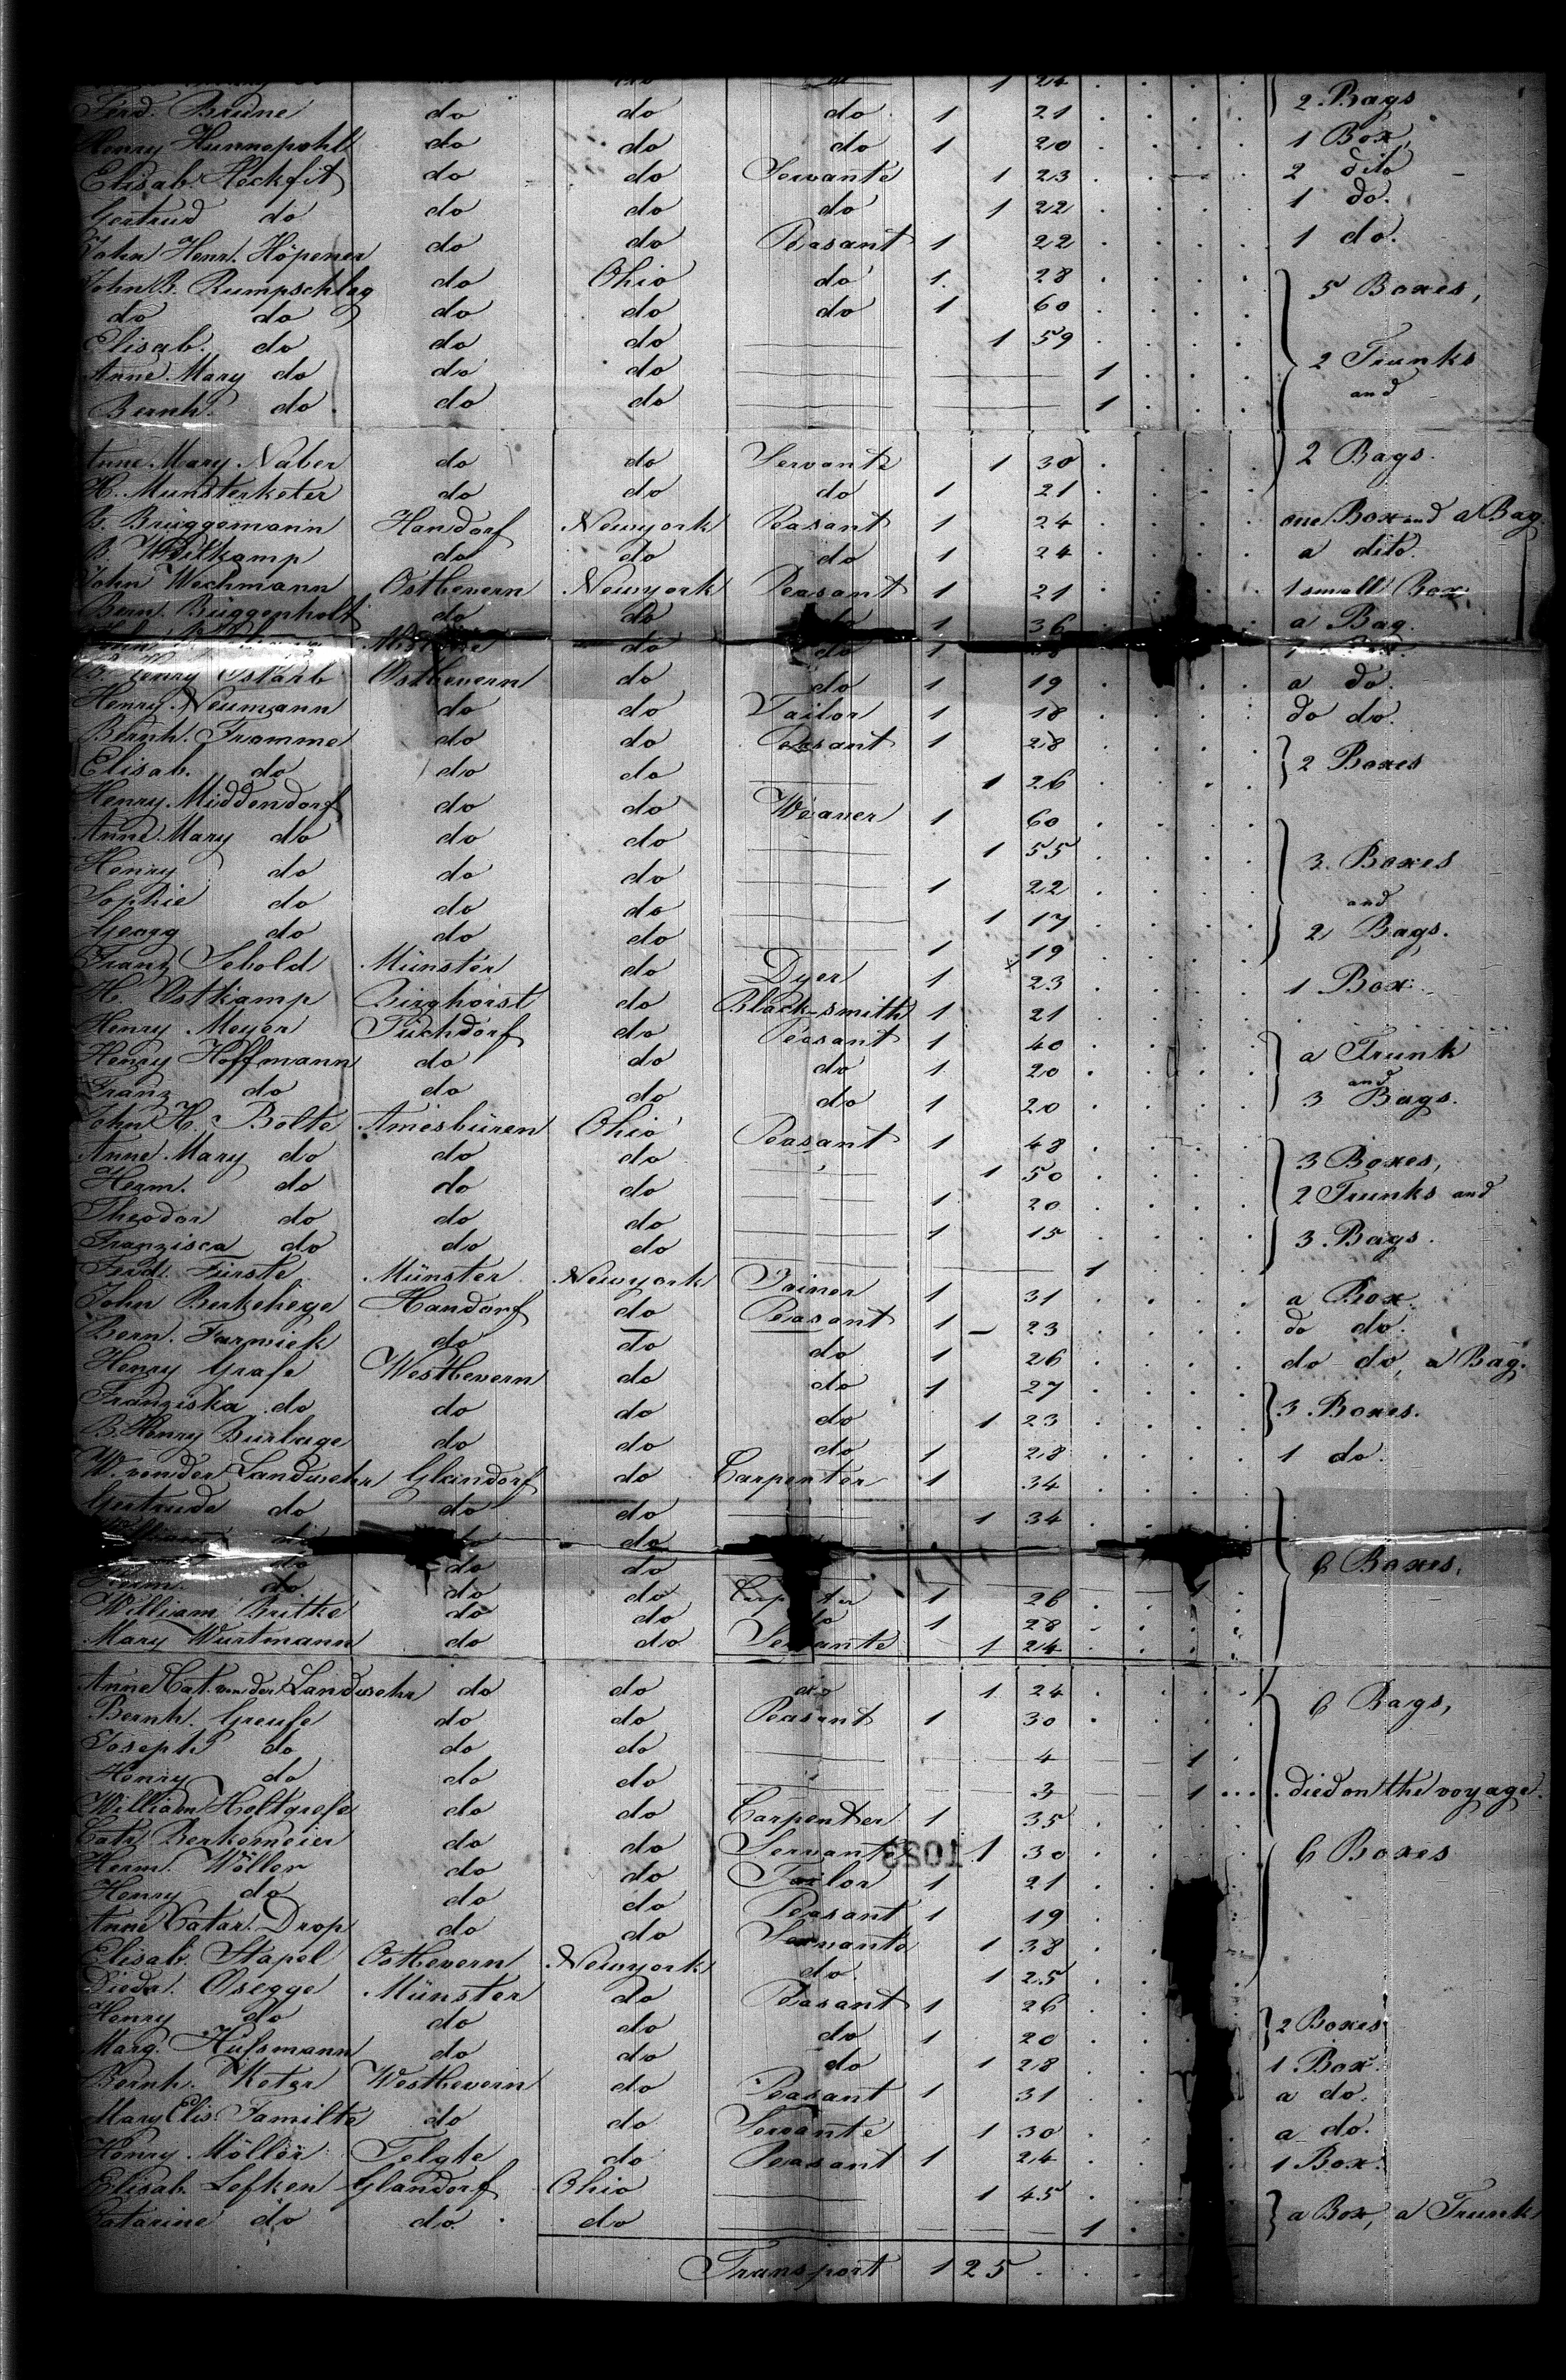 24
Ferd. Brüne do do do 1 21 2 Bags
Henry Hunnepohl do do do 1 20 1 Box,
Elisab. Heckfit do do Servante 1 23 2 dito
Gertrud do do do do 1 22 1 do.
John Henr. Höpener do do Peasant 1 22 1 do.
John B. Rumpschlag do Ohio do 1 28 5 Boxes,
do do do do do 1 60
Elisab. do do do 1 59
Anne Mary do do do 1 2 Trunks
Bernh. do do do 1 and
Anne Mary Naber do do Servante 1 30 2 Bags.
H. Munsterketer do do do 1 21
B. Brüggemann Handorf Newyork Peasant 1 24 one Box and a Bag
B. Wittkamp do do do 1 24 a dito.
John Wechmann Ostbevern Newyork Peasant 1 21 1 small Box
Bern. Büggenholt do do do 1 36 a Bag.
John do do 1
B. Henry Ostarb Ostbevern do do 1 19 a do.
Henry Neumann do do Tailor 1 18 do do.
Bernh. Framme do do Peasant 1 28 2 Boxes
Elisab. do do do 1 26
Henry Middendorf do do Weaver 1 60
Anne Mary do do do 1 55 3 Boxes
Henry do do do 1 22 and
Sophie do do do 1 17 2 Bags.
Georg do do do 1 19
Franz Sebold Münster do Dyer 1 23 1 Box.
H. Ostkamp Binghorst do Black-smith 1 21
Henry Meyer Füchdorf do Peasant 1 40 a Trunk
Henry Hoffmann do do do 1 20 and
Franz do do do do 1 20 3 Bags.
John H. Bolte Amesbüren Ohio Peasant 1 48
Anne Mary do do do 1 50 3 Boxes,
Herm. do do do 1 20 2 Trunks and
Theodor do do do 1 15
Franzisca do do do 1 3 Bags.
Ferd. Fürste Münster Newyork Joiner 1 31 a Box.
John Bertzhege Handorf do Peasant 1 – 23 do do.
Bern. Farwick do do do 1 26 do do, a Bag.
Henry Grafe Westbevern do do 1 27
Franziska do do do do 1 23 3 Boxes.
B. Henry Burlage do do do 1 28 1 do.
W. von der Landwehr Glandorf do Carpenter 1 34
Gertrude do do do 1 34
do do do
do do do 6 Boxes,
Herm. do do do Carpenter 1 26 1
William Britke do do do 1 28
Mary Wurtmann do do Servante 1 24
Anne Cat. von der Landwehr do do do 1 24
Bernh. Greufe do do Peasant 1 30 6 Bags,
Joseph do do do 4 1
Henry do do do 3 1 died on the voyage.
William Holtgrefe do do Carpenter 1 35
Catr. Berkemeier do do Servante 1 30 6 Boxes
1023
Herm. Wöller do do Tailor 1 21
Henry do do do Peasant 1 19
Anne Catar. Drop do do Servante 1 38
Elisab. Stapel Ostbevern Newyork do. 1 25
Diedr. Osegge Münster do Peasant 1 26
Henry do do do do 1 20 2 Boxes
Marg. Hülsmann do do do 1 28 1 Box.
Bernh. Keter Westbevern do Peasant 1 31 a do.
Mary Elis. Familte do do Servante 1 30 a do.
Henry Möller Telgte do Peasant 1 24 1 Box.
Elisab. Lefken Glandorf Ohio 1 45
Catarine do do. do 1 a Box, a Trunk
Transport 125.